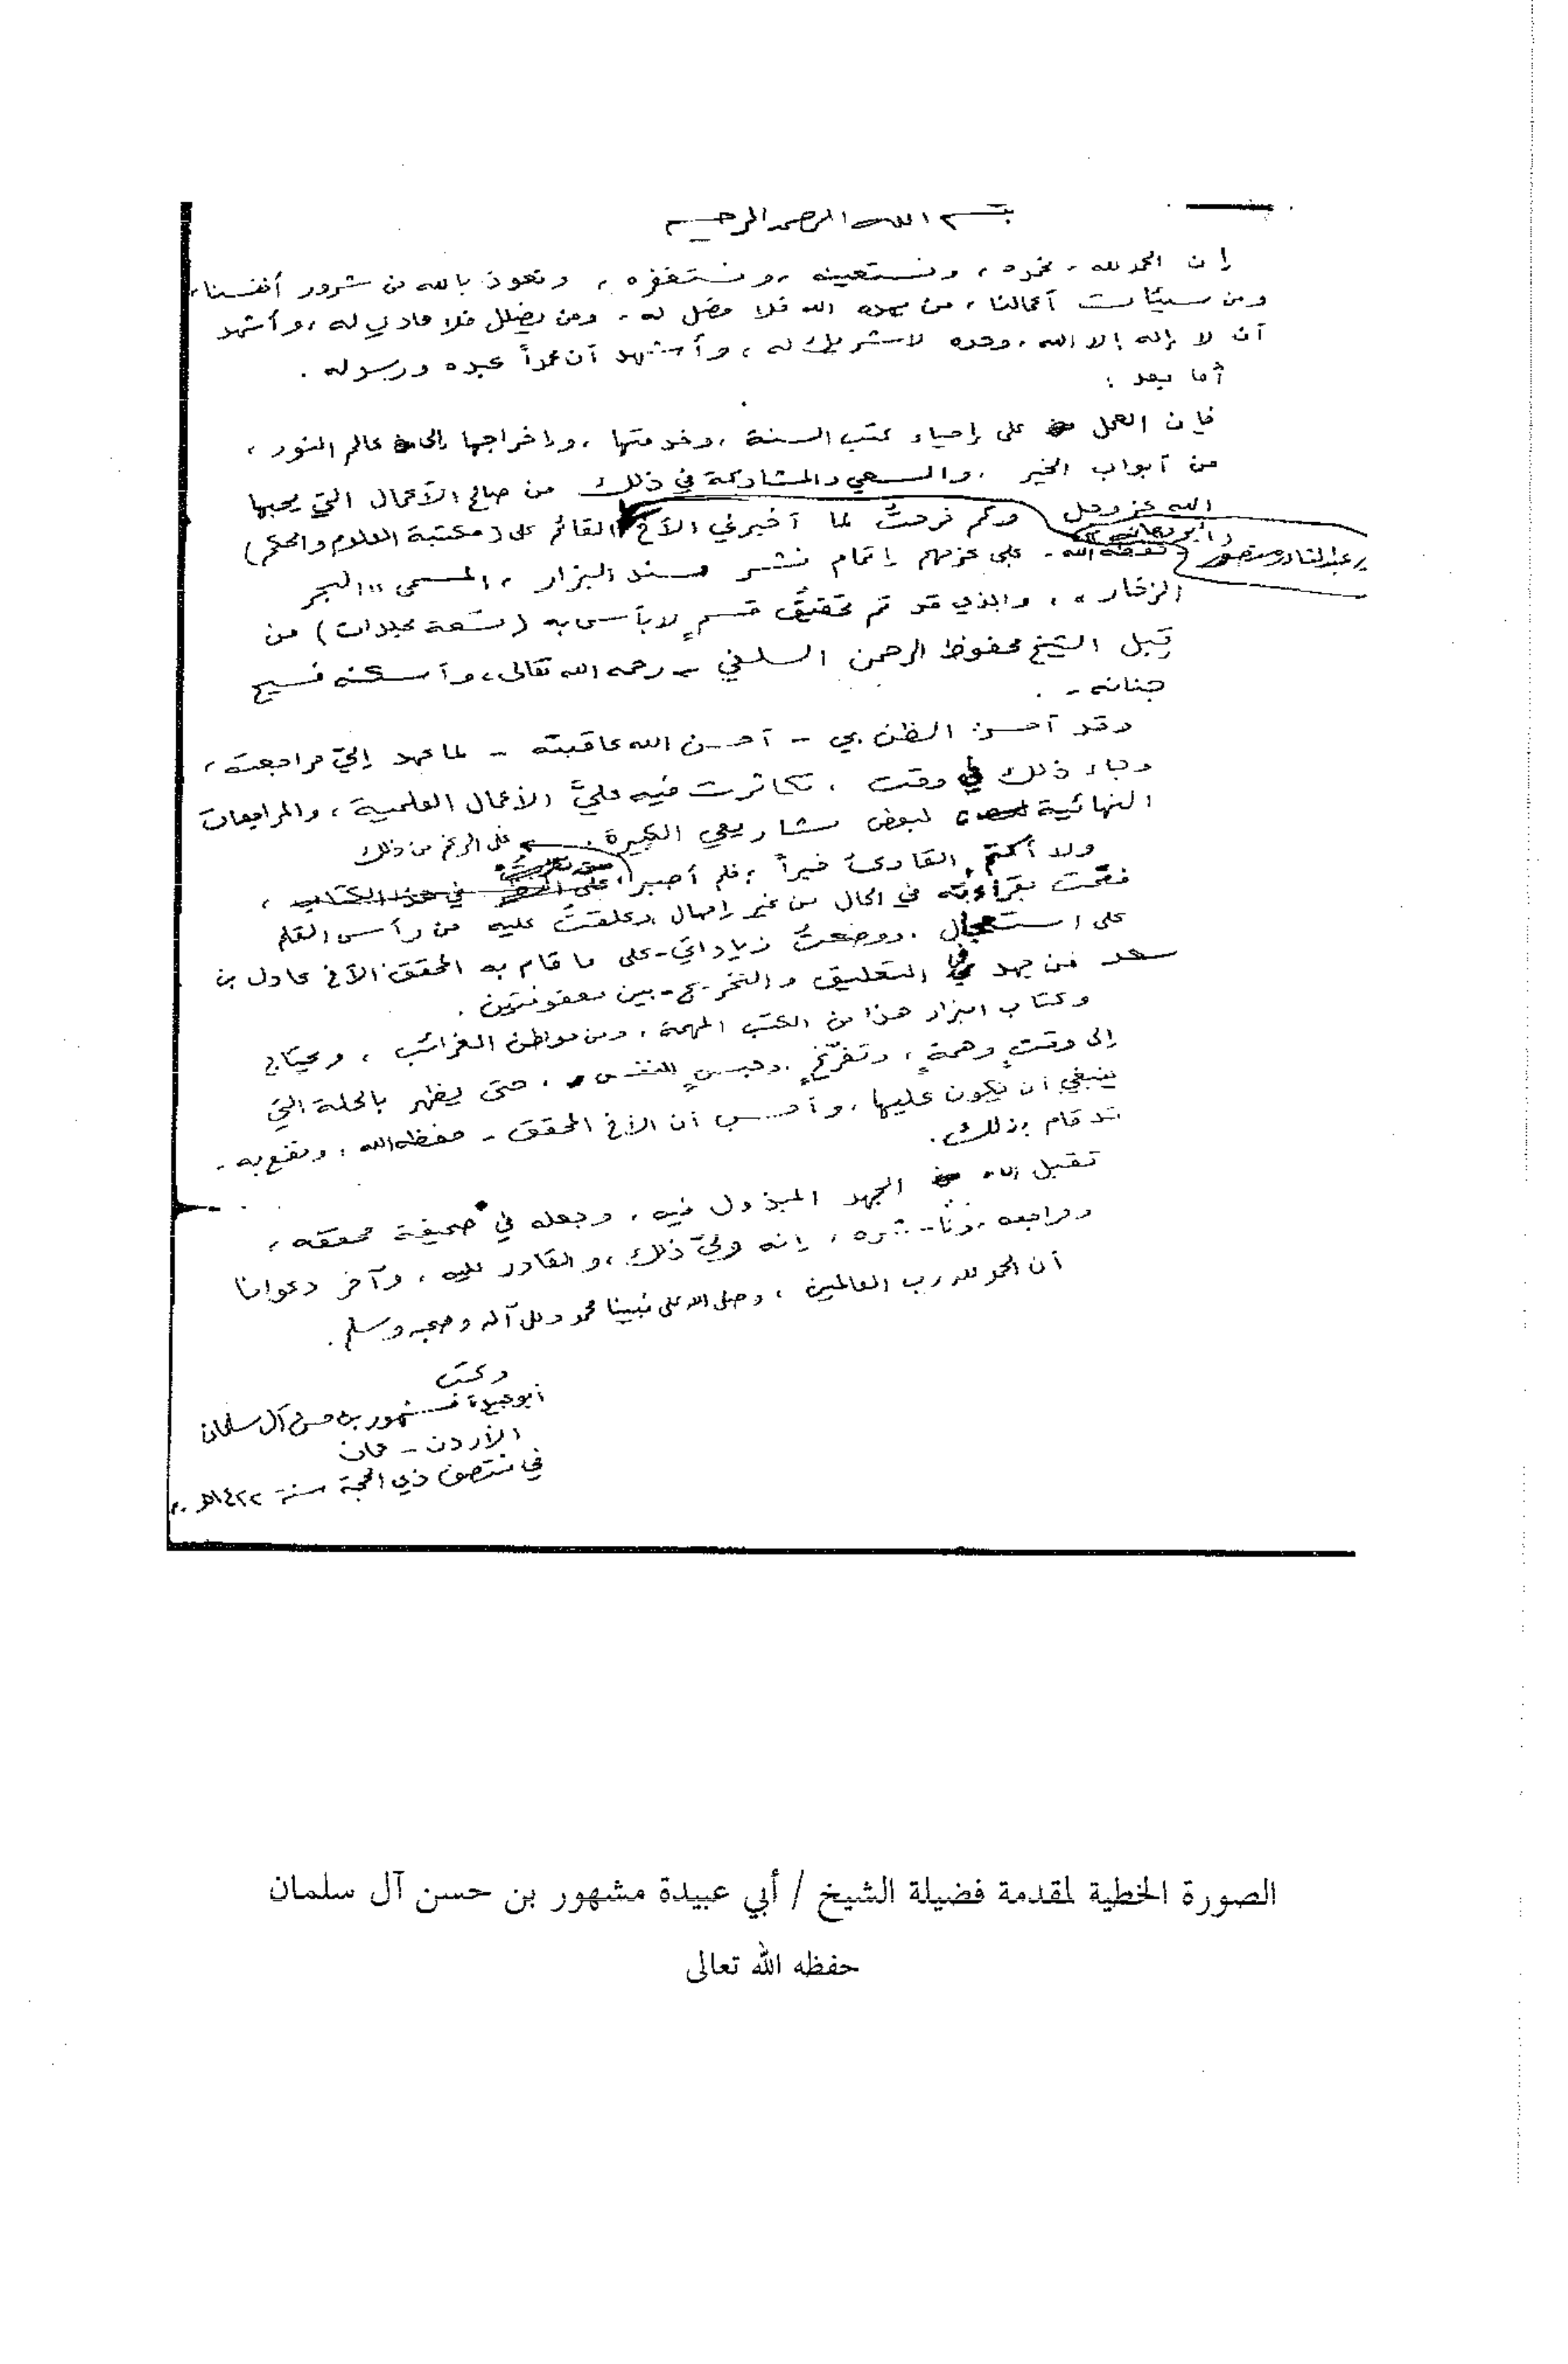 بسم الله الرحمن الرحيم
إن الحمد لله، نحمده، ونستعينه، ونستغفره، ونعوذ بالله من شرور أنفسنا،
ومن سيئات أعمالنا، من يهده الله فلا مضل له، ومن يضلل فلا هادي له، وأشهد
أن لا إله إلا الله، وحده لا شريك له، وأشهد أن محمداً عبده ورسوله.
أما بعد:
فإن العمل على إحياء كتب السنة، وخدمتها، وإخراجها إلى عالم النور،
من أبواب الخير، والسعي والمشاركة في ذلك من صالح الأعمال التي يحبها
الله عز وجل وكم فرحتُ لما أخبرني الأخ القائم على (مكتبة العلوم والحكم)
/ عبدالقادر منصور - حفظه الله - على عزمهم إتمام نشر مسند البزار، المسمى "البحر
الزخار"، والذي قد تم تحقيق قسمٍ لا بأس به (تسعة مجلدات) من
قِبل الشيخ محفوظ الرحمن السلفي - رحمه الله تعالى، وأسكنه فسيح
جنانه -.
وقد أحسن الظن بي - أحسن الله عاقبته - لما عهد إليّ مراجعته،
وجاء ذلك في وقت، تكاثرت فيه عليَّ الأعمال العلمية، والمراجعات
النهائية لبعض مشاريعي الكبيرة.
على الرغم من ذلك
ولا أكتم القارئ خبراً، فلم أصبر،
فقمت بقراءته في الحال من غير إمهال وعلقتُ عليه من رأس القلم
على استعجال، ووضعتُ زياداتي - على ما قام به المحقق الأخ عادل بن
سعد من جهد في التعليق والتخريج - بين معقوفتين.
وكتاب البزار هذا من الكتب المهمة، ومن مواطن الغرائب، ويحتاج
إلى وقتٍ وهمةٍ، وتفرّغٍ، وحبسٍ للنفس، حتى يظهر بالحلة التي
ينبغي أن يكون عليها، وأحسب أن الأخ المحقق - حفظه الله، ونفع به -
قد قام بذلك.
تقبل الله الجهد المبذول فيه، وجعله في صحيفة محققه،
ومراجعه، وناشره، إنه وليّ ذلك، والقادر عليه، وآخر دعوانا
أن الحمد لله رب العالمين، وصلى الله على نبينا محمد وعلى آله وصحبه وسلم.
وكتب
أبو عبيدة مشهور بن حسن آل سلمان
الأردن - عمان
في منتصف ذي الحجة سنة ١٤٢٢هـ
الصورة الخطية لمقدمة فضيلة الشيخ / أبي عبيدة مشهور بن حسن آل سلمان
حفظه الله تعالى